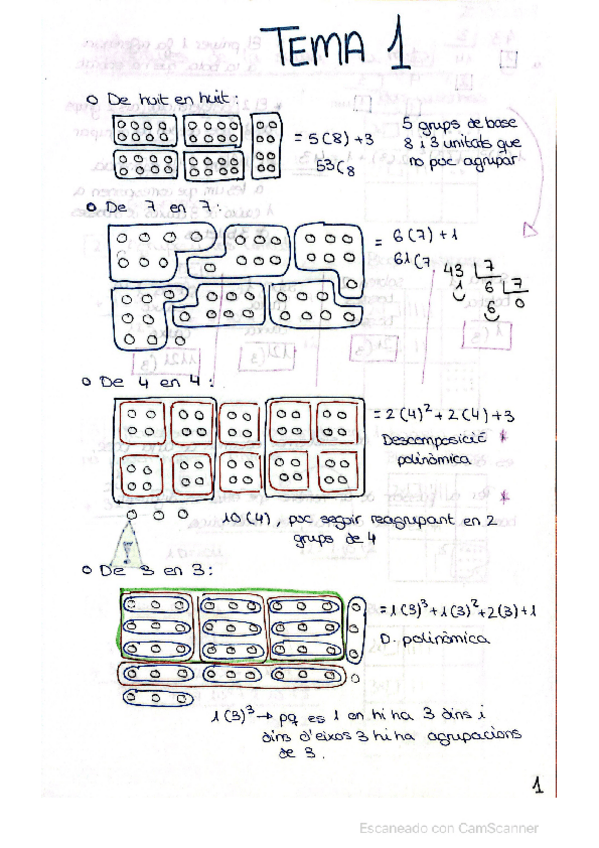 TEMA 1
o De huit en huit:
= 5(8)+3
53(8
5 grups de base
8 i 3 unitats que
no puc agrupar
o De 7 en 7:
= 6(7)+1
61(7
43 7
1 6 7
6 0
o De 4 en 4:
= 2(4)²+2(4)+3
Descomposició *
polinòmica
10(4), puc seguir reagrupant en 2 *
grups de 4
o De 3 en 3:
= 1(3)³+1(3)²+2(3)+1
D. polinòmica
1(3)³→ pq es 1 en hi ha 3 dins i
dins d'eixos 3 hi ha agrupacions
de 3.
1
Escaneado con CamScanner